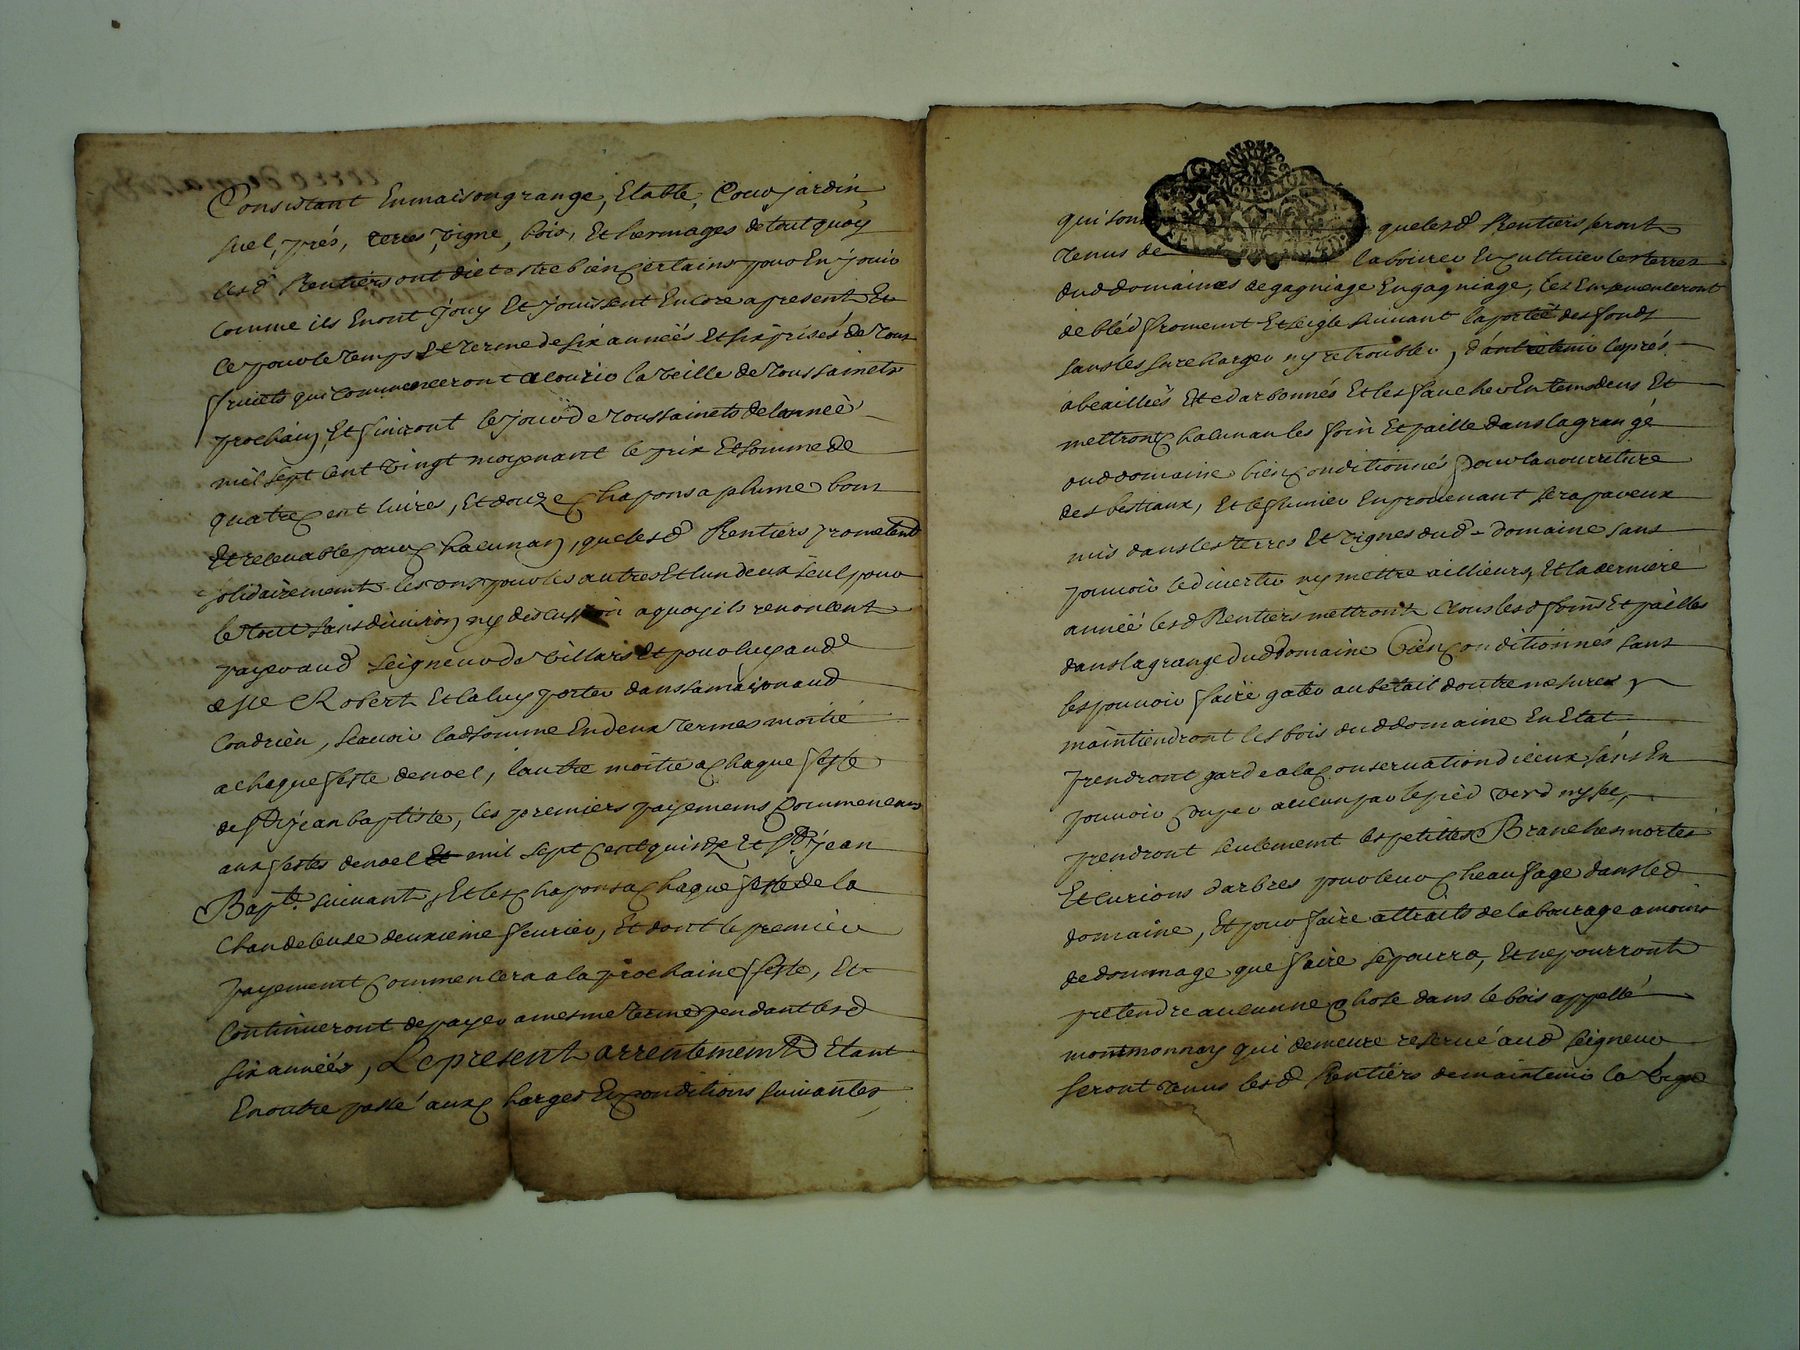 Consistant En maison grange, Etable, Cour jardin
suel, prés, terres, vigne, bois, Et hermages de tout quoy
lesd Rentiers ont dict estre bien certains pour En jouir
comme ils En ont joüy Et jouissent Encore a present Et
Ce pour le temps Et terme de six années Et six prises de tous
fruicts qui commenceront a courir la veille de Toussaincts
prochain, Et finiront le jour de Toussaincts de lannée
mil sept cent vingt moyenant le prix Et somme de
quatre cent livres, Et douze chapons a plume bons
Et recevable pour chacun an, que lesd Rentiers prometent
solidairement les uns pour les autres Et lun deux seul pour
le tout sans division ny discussion a quoy ils renoncent
payer aud seigneur de Villars Et pour luy aud
Robert Et la luy porter dans sa maison aud
Condrieu, scavoir lad somme En deux termes moitié
a chaque feste de noel, lautre moitie a chaque feste
de St jean baptiste, les premiers payemens Commencans
aux festes de noel mil sept cent quinze Et St jean
Bapte suivant, Et les chapons a chaque feste de la
Chandeleuse deuxieme fevrier, Et dont le premier
payement commencera a la prochaine feste, Et
Continueront de payer a mesme terme pendant lesd
six années, Le present arrentement Etant
En outre passé aux charges Et conditions suivantes,
qui sont que lesd Rentiers seront
Tenus de labourer Et cultiver les terres
dud domaines de gagniage En gagniage, les Ensemenceront
de bléd froment Et seigle suivant la portée des fonds
sans les surcharger ny retroubler, dantretenir les prés
abeailliés Et Et les faucher En tems deus Et
mettront chacun an les foin Et paille dans la grange
dud domaine bien conditionnés pour la nourriture
des bestiaux, Et le fumier En provenant sera par eux
mis dans les terres Et vignes dud domaine sans
pouvoir le divertir ny mettre aillieurs, Et la derniere
année lesd Rentiers mettront tous lesd foins Et pailles
dans la grange dud domaine bien conditionnés sans
les pouvoir faire gater au betail doutre mesures
maintiendront les bois dud domaine En Etat
prendront garde a la conservation diceux sans En
pouvoir couper aucun par le pied verd ny sec,
prendront seulement les petittes Branches mortes
Et curions darbres pour leur chaufage dans led
domaine, Et pour faire attraits de labourage a moins
de dommage que faire se pourra, Et ne pourront
pretendre aucunne chose dans le bois appellé
montmonnay qui demeure reservé aud seigneur
seront tenus lesd Rentiers de maintenir la vigne